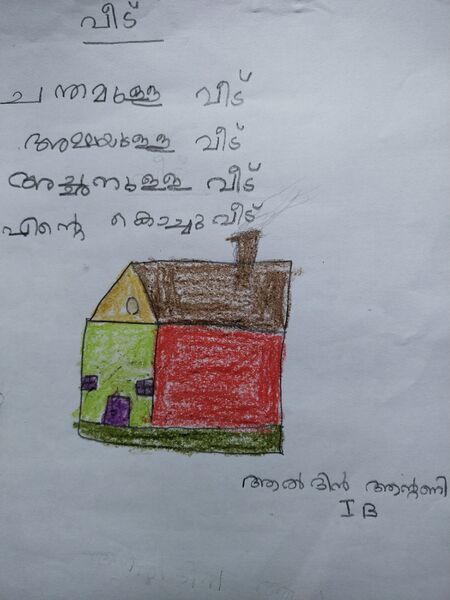 വീട്
ചന്തമുള്ള വീട്
അമ്മയുള്ള വീട്
അച്ഛനുള്ള വീട്
എന്റെ കൊച്ചു വീട്
ആൽദിൻ ആന്റണി
I B